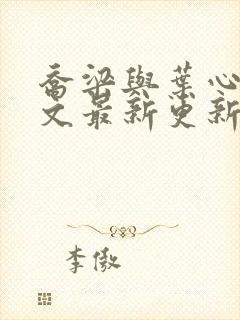 喬梁與葉心
文最新更新
李傲